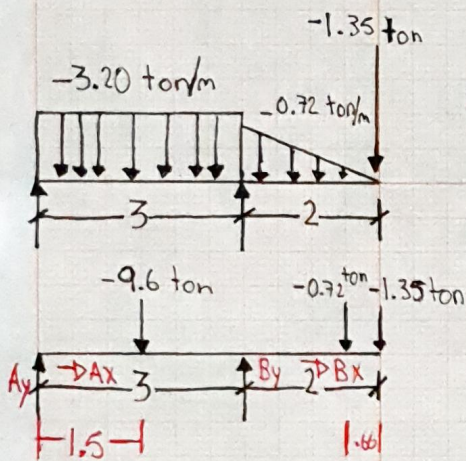 -1.35 ton
-3.20 ton/m
-0.72 ton/m
3
2
-9.6 ton
-0.72 ton -1.35 ton
Ay →Ax 3 By 2 →Bx
1.5 .66